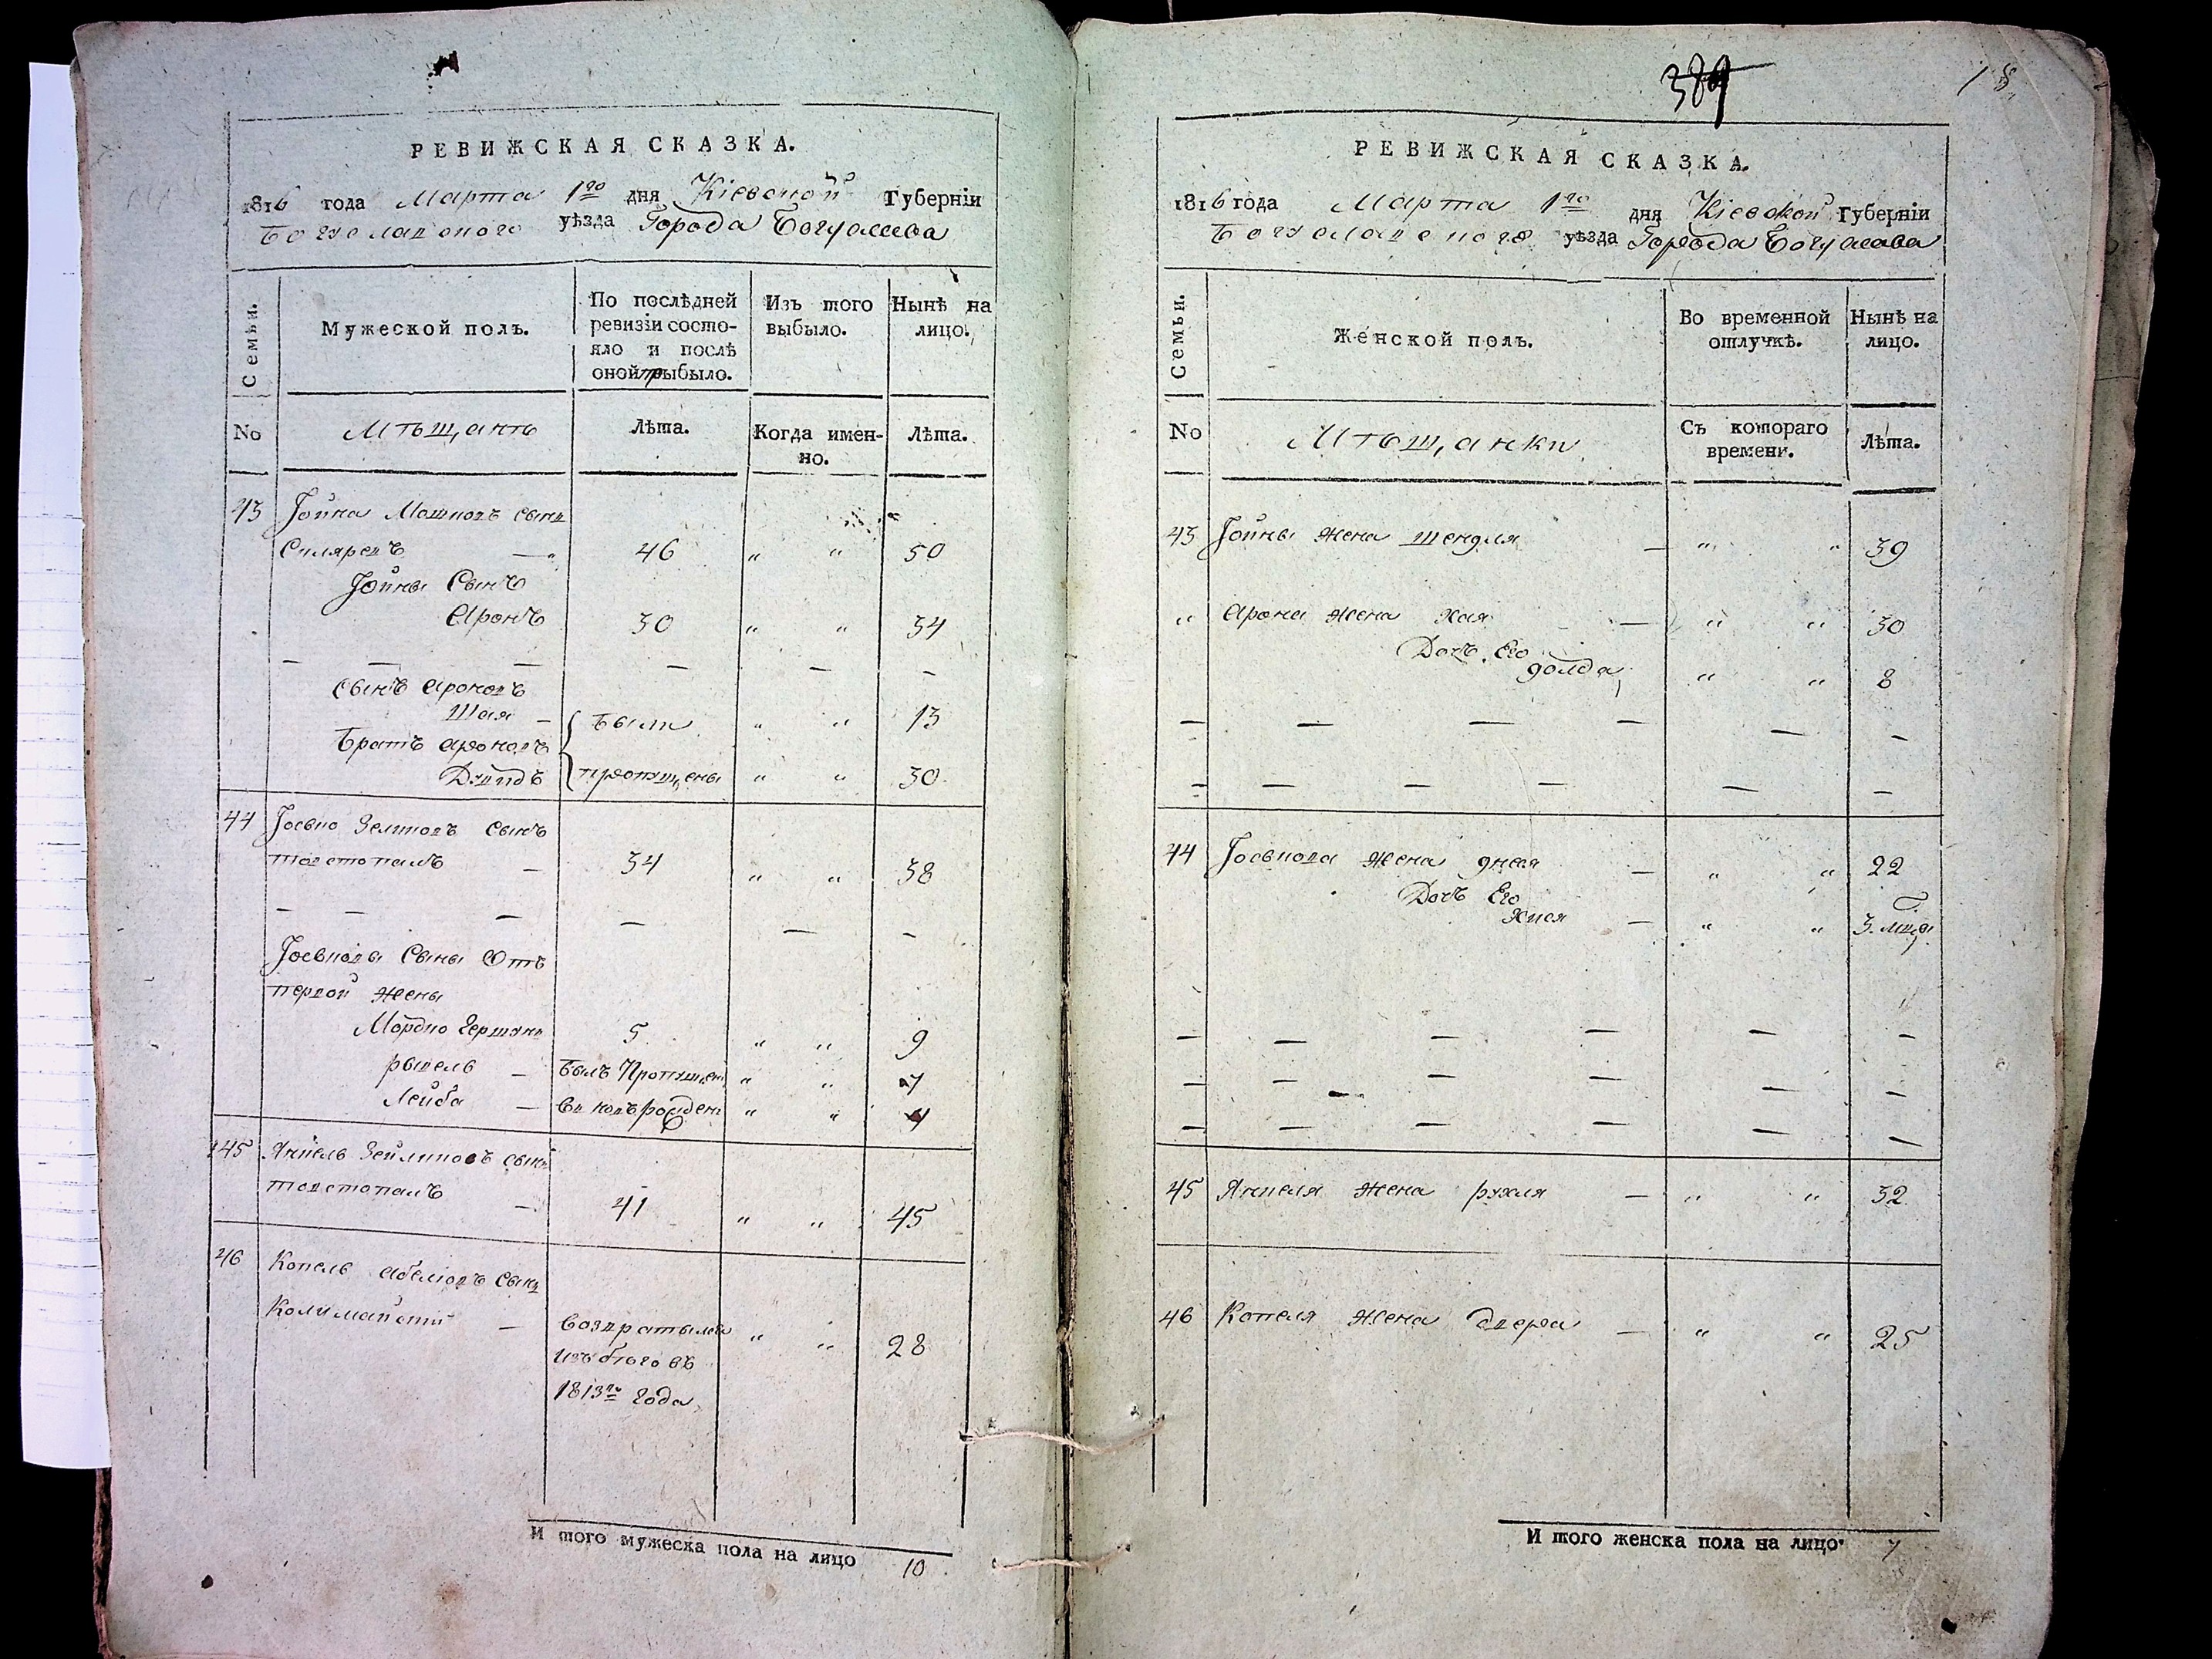 РЕВИЖСКАЯ СКАЗКА.
1816 года Марта 1го дня Кіевской Губерніи
Богуславского уѣзда Города Богуслава
Семьи.
Мужеской полъ.
По послѣдней
ревизіи состо-
яло и послѣ
оной прибыло.
Изъ того
выбыло.
Нынѣ на
лицо.
No
Мѣщанъ
Лѣта.
Когда имен-
но.
Лѣта.
43 Іойна Мошковъ сынъ
Скляревъ — 46 " " 50
Іойны Сынъ
Аронъ 30 " " 34
— — — — — —
Сынъ Ароновъ
Шая — были " " 13
Братъ Ароновъ
Давидъ пропущены " " 30
44 Іосько Зеликовъ сынъ
толстопалъ — 34 " " 38
— — — — — —
Іоськовы Сыны Отъ
первой жены
Мордко Гершанъ 5 " " 9
— былъ Пропущенъ " " 7
Лейба — рожденъ " " 4
45 Янкель Зейликовъ сынъ
толстопалъ — 41 " " 45
46 Копель Абелювъ Сынъ
— возвратылся " " 28
изъ бѣгове
1813го года
И того мужеска пола на лицо 10
389
18
РЕВИЖСКАЯ СКАЗКА.
1816 года Марта 1го дня Кіевской Губерніи
Богуславского уѣзда Города Богуслава
Семьи.
Женской полъ.
Во временной
отлучкѣ.
Нынѣ на
лицо.
No
Мѣщанки
Съ котораго
времени.
Лѣта.
43 Іойны жена шендля — " " 39
" Арона жена Хая — " " 30
Дочь Его
голда " " 8
— — — — — —
— — — — — —
44 Іоськова жена — " " 22
Дочь Его
— " " 3. мца
— — — — — —
— — — — — —
— — — — — —
45 Янкеля жена рухля — " " 32
46 Копеля жена двера — " " 25
И того женска пола на лицо 7